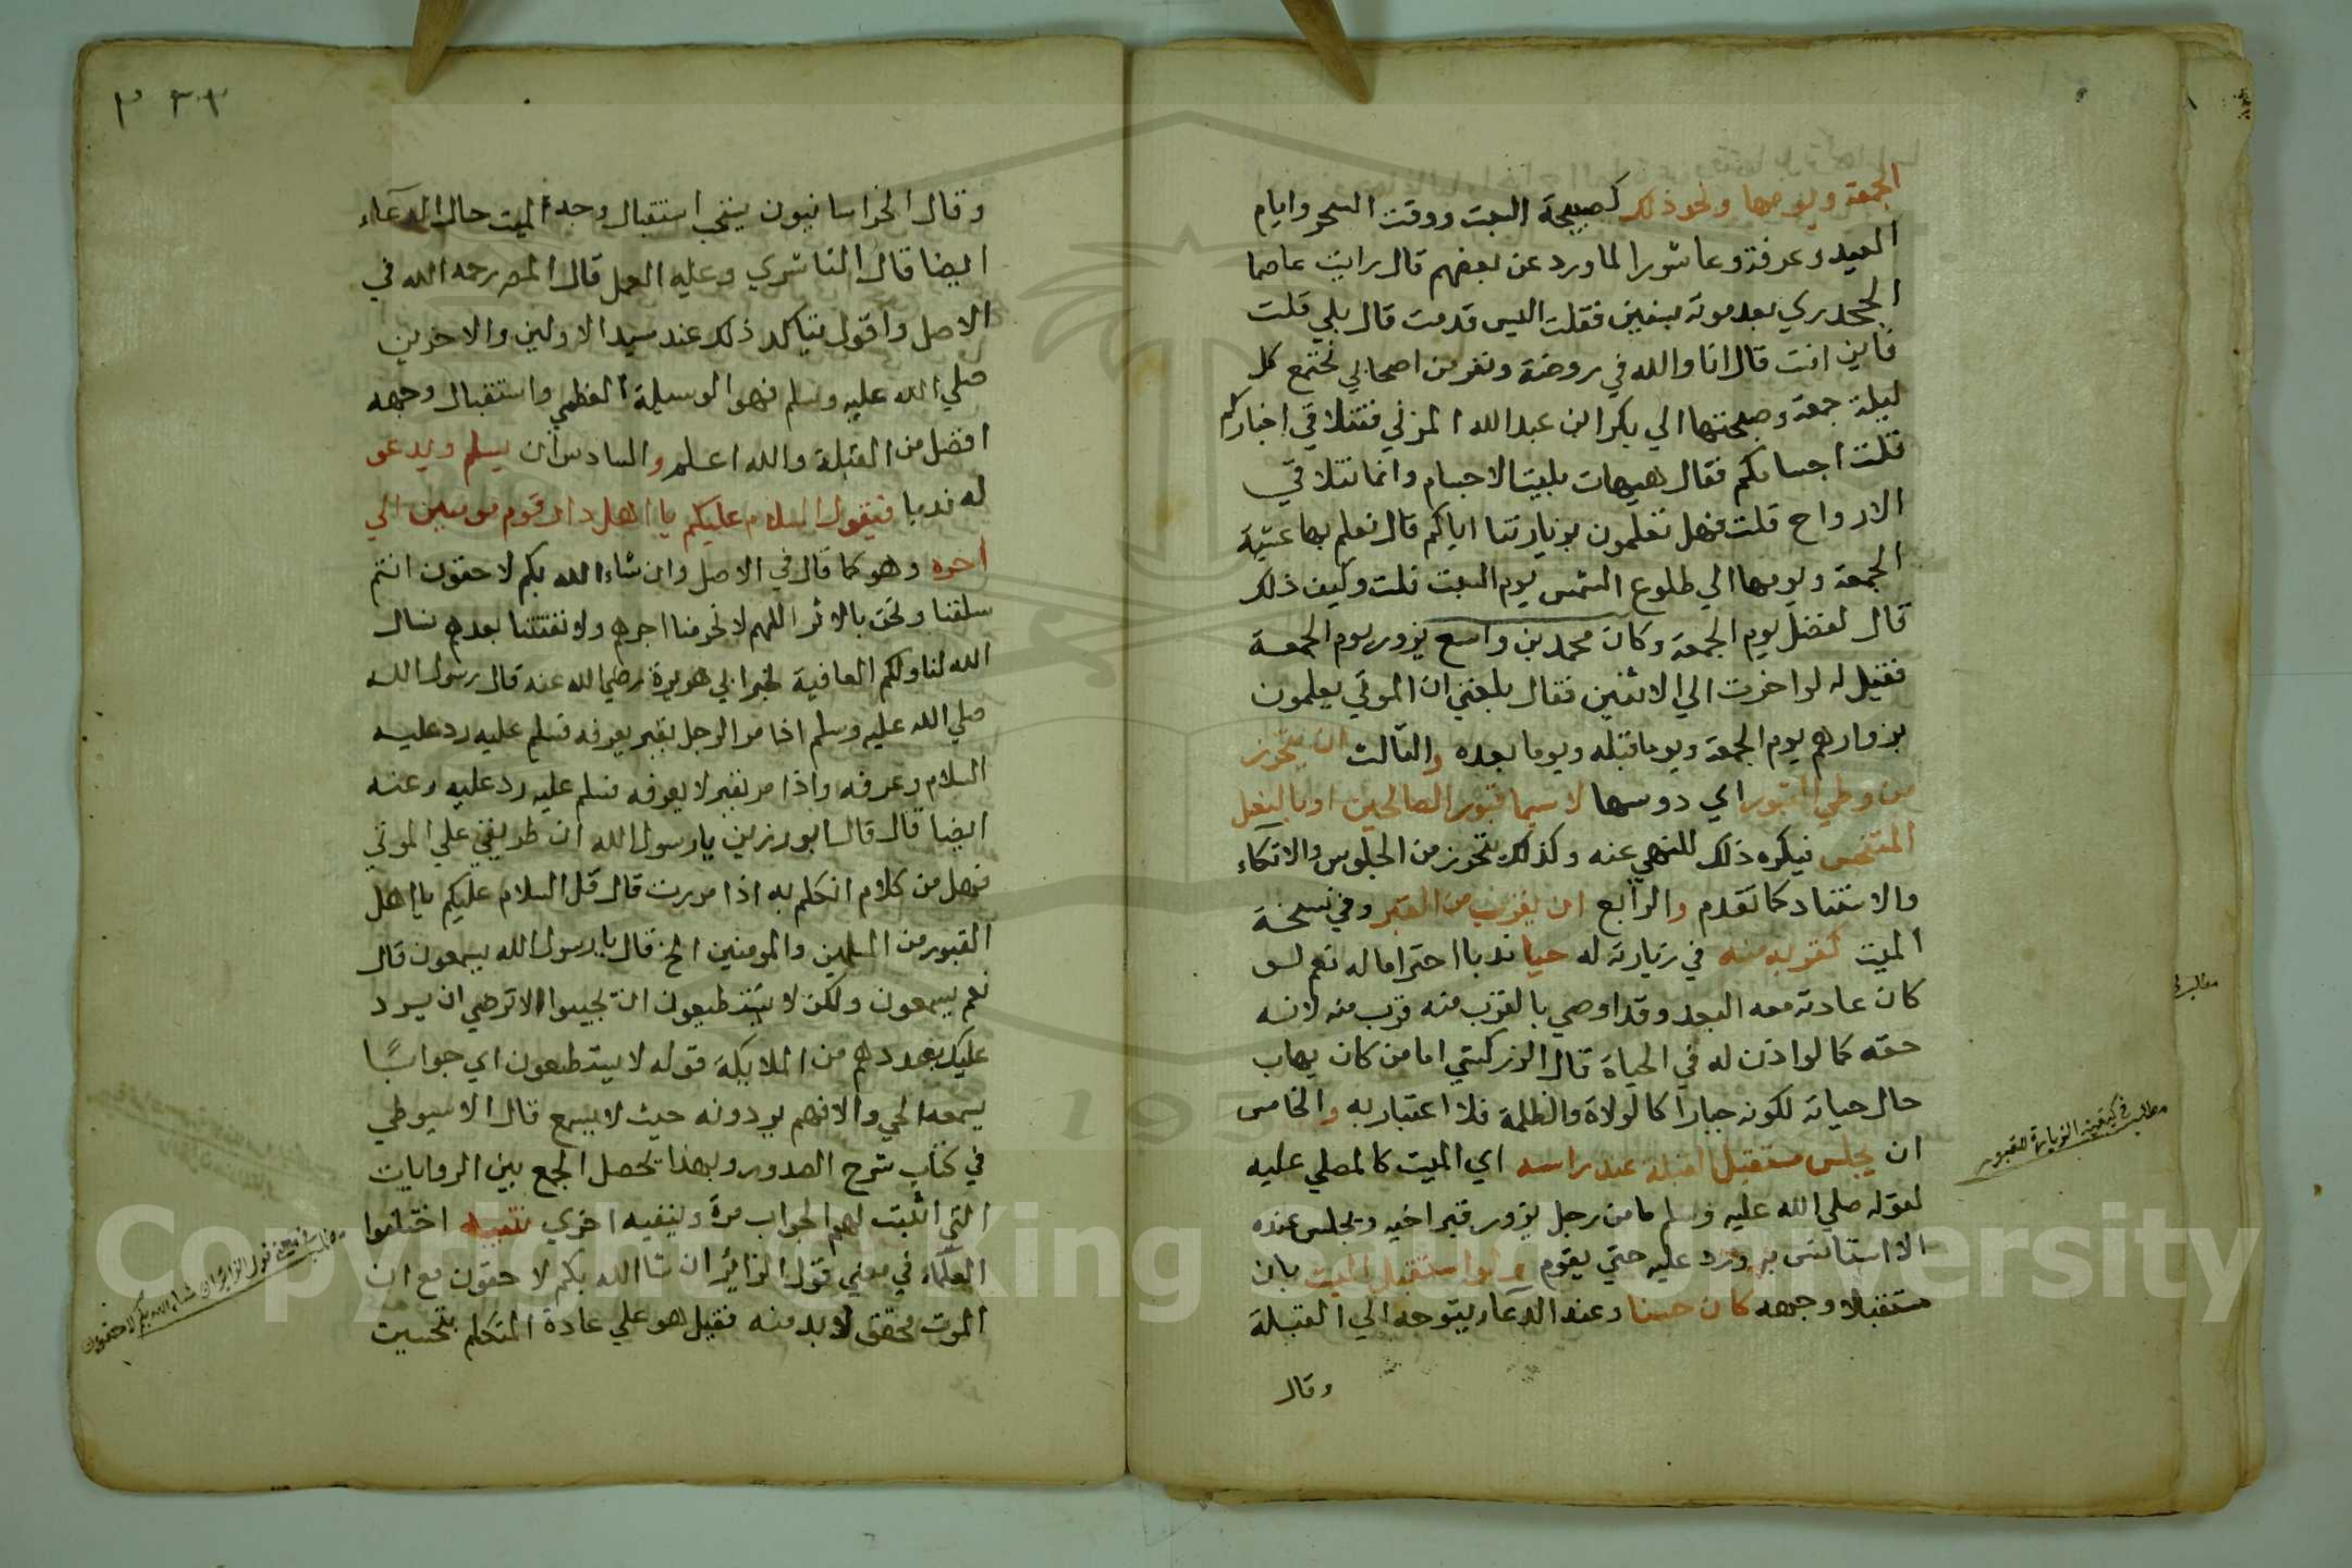 الجمعة ويومها ونحو ذلك كصبيحة السبت ووقت السحر وايام
العيد وعرفة وعاشورا لما ورد عن بعضهم قال رايت عاصما
الجحدري بعد موته بسنين فقلت اليس قدمت قال بلي قلت
فاين انت قال انا والله في روضة ونفر من اصحابي نجتمع كل
ليلة جمعة وصبحتها الي بكر ابن عبد الله المزني فنتلاقي اخباركم
قلت اجسامكم فقال هيهات بليت الاجسام وانما نتلاقي
الارواح قلت فهل تعلمون بزيارتنا اياكم قال نعلم بها عشية
الجمعة ويومها الي طلوع الشمس يوم السبت قلت وكيف ذلك
قال لفضل يوم الجمعة وكان محمد بن واسع يزور يوم الجمعة
فقيل له لو اخرت الي الاثنين فقال بلغني ان الموتي يعلمون
بزوارهم يوم الجمعة ويوما قبله ويوما بعده والثالث ان يتحرز
من وطي القبور اي دوسها لا سيما قبور الصالحين او بالنعل
المتنجس فيكره ذلك للنهي عنه وكذلك يتحرز من الجلوس والاتكاء
والاستناد كما تقدم والرابع ان يقرب من القبر وفي نسخة
الميت كقربه منه في زيارته له حيا ندبا احتراما له نعم لو
كان عادته معه البعد وقد اوصي بالقرب منه قرب منه لانه
حقه كما لو اذن له في الحياة قال الزركشي اما من كان يهاب
حال حياته لكونه جبارا كالولاة والظلمة فلا اعتبار به والخامس
ان يجلس مستقبل القبلة عند راسه اي الميت كالمصلي عليه
لقوله صلي الله عليه وسلم ما من رجل يزور قبر اخيه ويجلس عنده
الا استانس به ورد عليه حتي يقوم ولو استقبل الميت بان
مستقبلا وجهه كان حسنا وعند الدعا يتوجه الي القبلة
وقال
مطلب في كيفية الزيارة للقبور
٣٣٢
وقال الخراسانيون يستحب استقبال وجه الميت حال الدعاء
ايضا قال الناشري وعليه العمل قال المص رحمه الله في
الاصل واقول يتاكد ذلك عند سيد الاولين والاخرين
صلي الله عليه وسلم فهو الوسيلة العظمي واستقبال وجهه
افضل من القبلة والله اعلم والسادس ان يسلم ويدعو
له ندبا فيقول السلام عليكم يا اهل دار قوم مومنين الي
اخره وهو كما قال في الاصل وان شاء الله بكم لاحقون انتم
سلفنا ونحن بالاثر اللهم لا تحرمنا اجرهم ولا تفتنا بعدهم نسال
الله لنا ولكم العافية لخبر ابي هريرة رضي الله عنه قال رسول الله
صلي الله عليه وسلم اذا مر الرجل بقبر يعرفه فسلم عليه رد عليه
السلام وعرفه واذا مر بقبر لا يعرفه فسلم عليه رد عليه وعنه
ايضا قال قال ابو رزين يا رسول الله ان طريقي علي الموتي
فهل من كلام اتكلم به اذا مررت قال قل السلام عليكم يا اهل
القبور من المسلمين والمومنين الخ قال يا رسول الله يسمعون قال
نعم يسمعون ولكن لا يستطيعون ان تجيبوا الا ترضي ان يرد
عليك بعددهم من الملايكة قوله لا يستطيعون اي جوابًا
يسمعه الحي والا فهم يردونه حيث لا يسمع قال الاسيوطي
في كتاب شرح الصدور وبهذا تحصل الجمع بين الروايات
التي اثبتت لهم الجواب مرة وينفيه اخري تنبيه اختلفوا
العلماء في معني قول الزائر ان شا الله بكم لاحقون مع ان
الموت محقق لا بد منه فقيل هو علي عادة المتكلم بتحسين
مطلب في معني قول الزائر ان شاء الله بكم لاحقون